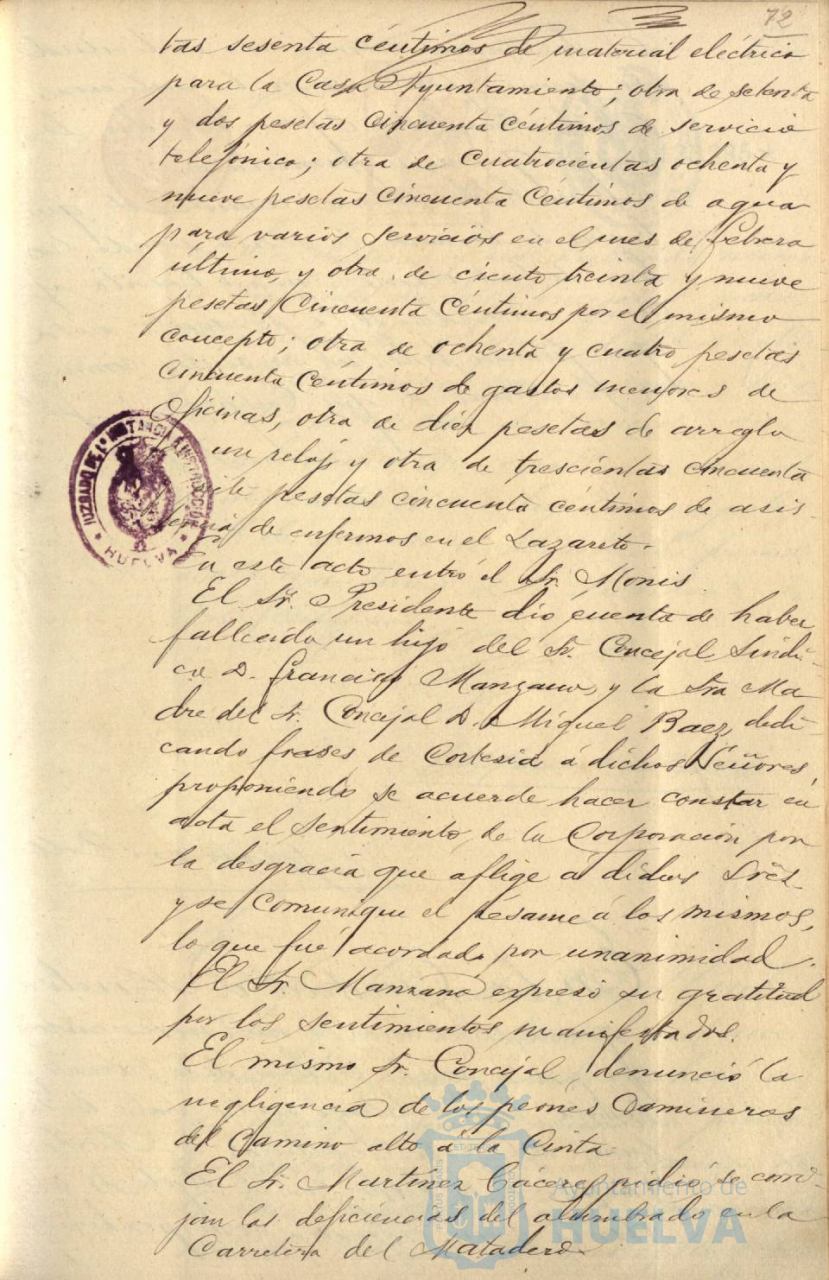 72
tas sesenta céntimos de material eléctrico
para la Casa Ayuntamiento; otra de setenta
y dos pesetas cincuenta céntimos de servicio
telefónico; otra de cuatrocientas ochenta y
nueve pesetas cincuenta céntimos de agua
para varios servicios en el mes de Febrero
último, y otra de ciento treinta y nueve
pesetas cincuenta céntimos por el mismo
concepto; otra de ochenta y cuatro pesetas
cincuenta céntimos de gastos menores de
Oficinas, otra de diez pesetas de arreglo
un reloj y otra de trescientas cincuenta
pesetas cincuenta céntimos de asis-
de enfermos en el Lazareto.
En este acto entró el Sr. Monis.
El Sr. Presidente dió cuenta de haber
fallecido un hijo del Sr. Concejal Síndi-
co D. Francisco Manzano, y la Sra Ma-
dre del Sr. Concejal D. Miguel Baez, dedi-
cando frases de cortesia á dichos Señores,
proponiendo se acuerde hacer constar en
acta el sentimiento de la Corporación por
la desgracia que aflige á dichos Sres
y se comunique el pésame á los mismos,
lo que fué acordado por unanimidad.
El Sr. Manzano expresó su gratitud
por los sentimientos manifestados.
El mismo Sr. Concejal, denunció la
negligencia de los peones Camineros
del Camino alto á la Cinta
El Sr. Martínez Cáceres pidió se corri-
jan las deficiencias del alumbrado en la
Carretera del Matadero.
JUZGADO DE 1ª INSTANCIA E INSTRUCCION
HUELVA
Ayuntamiento de
HUELVA